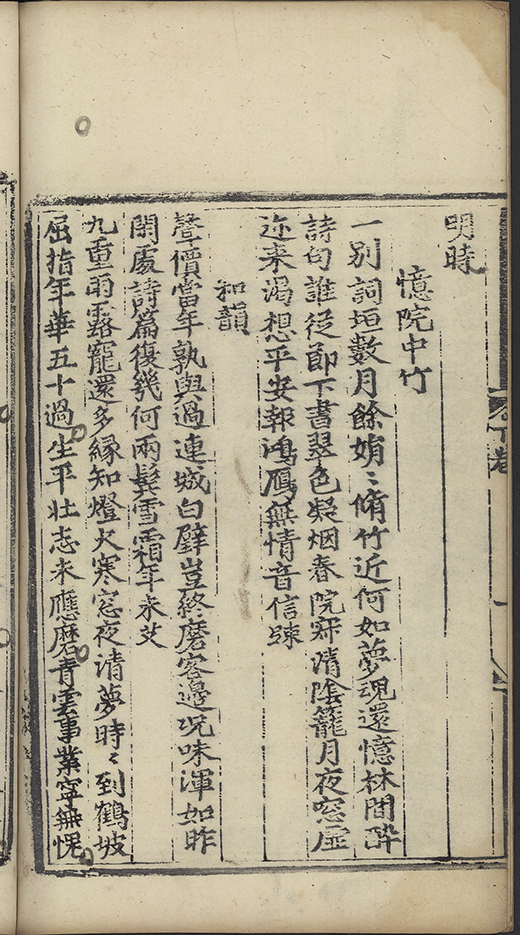 明時
憶院中竹
一別詞垣數月餘娟〻脩竹近何如夢魂還憶林間醉
詩句誰從節下書翠色凝烟春院寂清陰籠月夜窓虛
迩来渴想平安報鴻鴈無情音信踈
和韻
聲價當年孰與過連城白璧豈終磨客邊况味渾如昨
閑處詩篇復幾何兩鬂雪霜年未艾
九重雨露寵還多縁知燈火寒窓夜清夢時〻到鶴坡
屈指年華五十過生平壮志未應磨青雲事業寧無愧